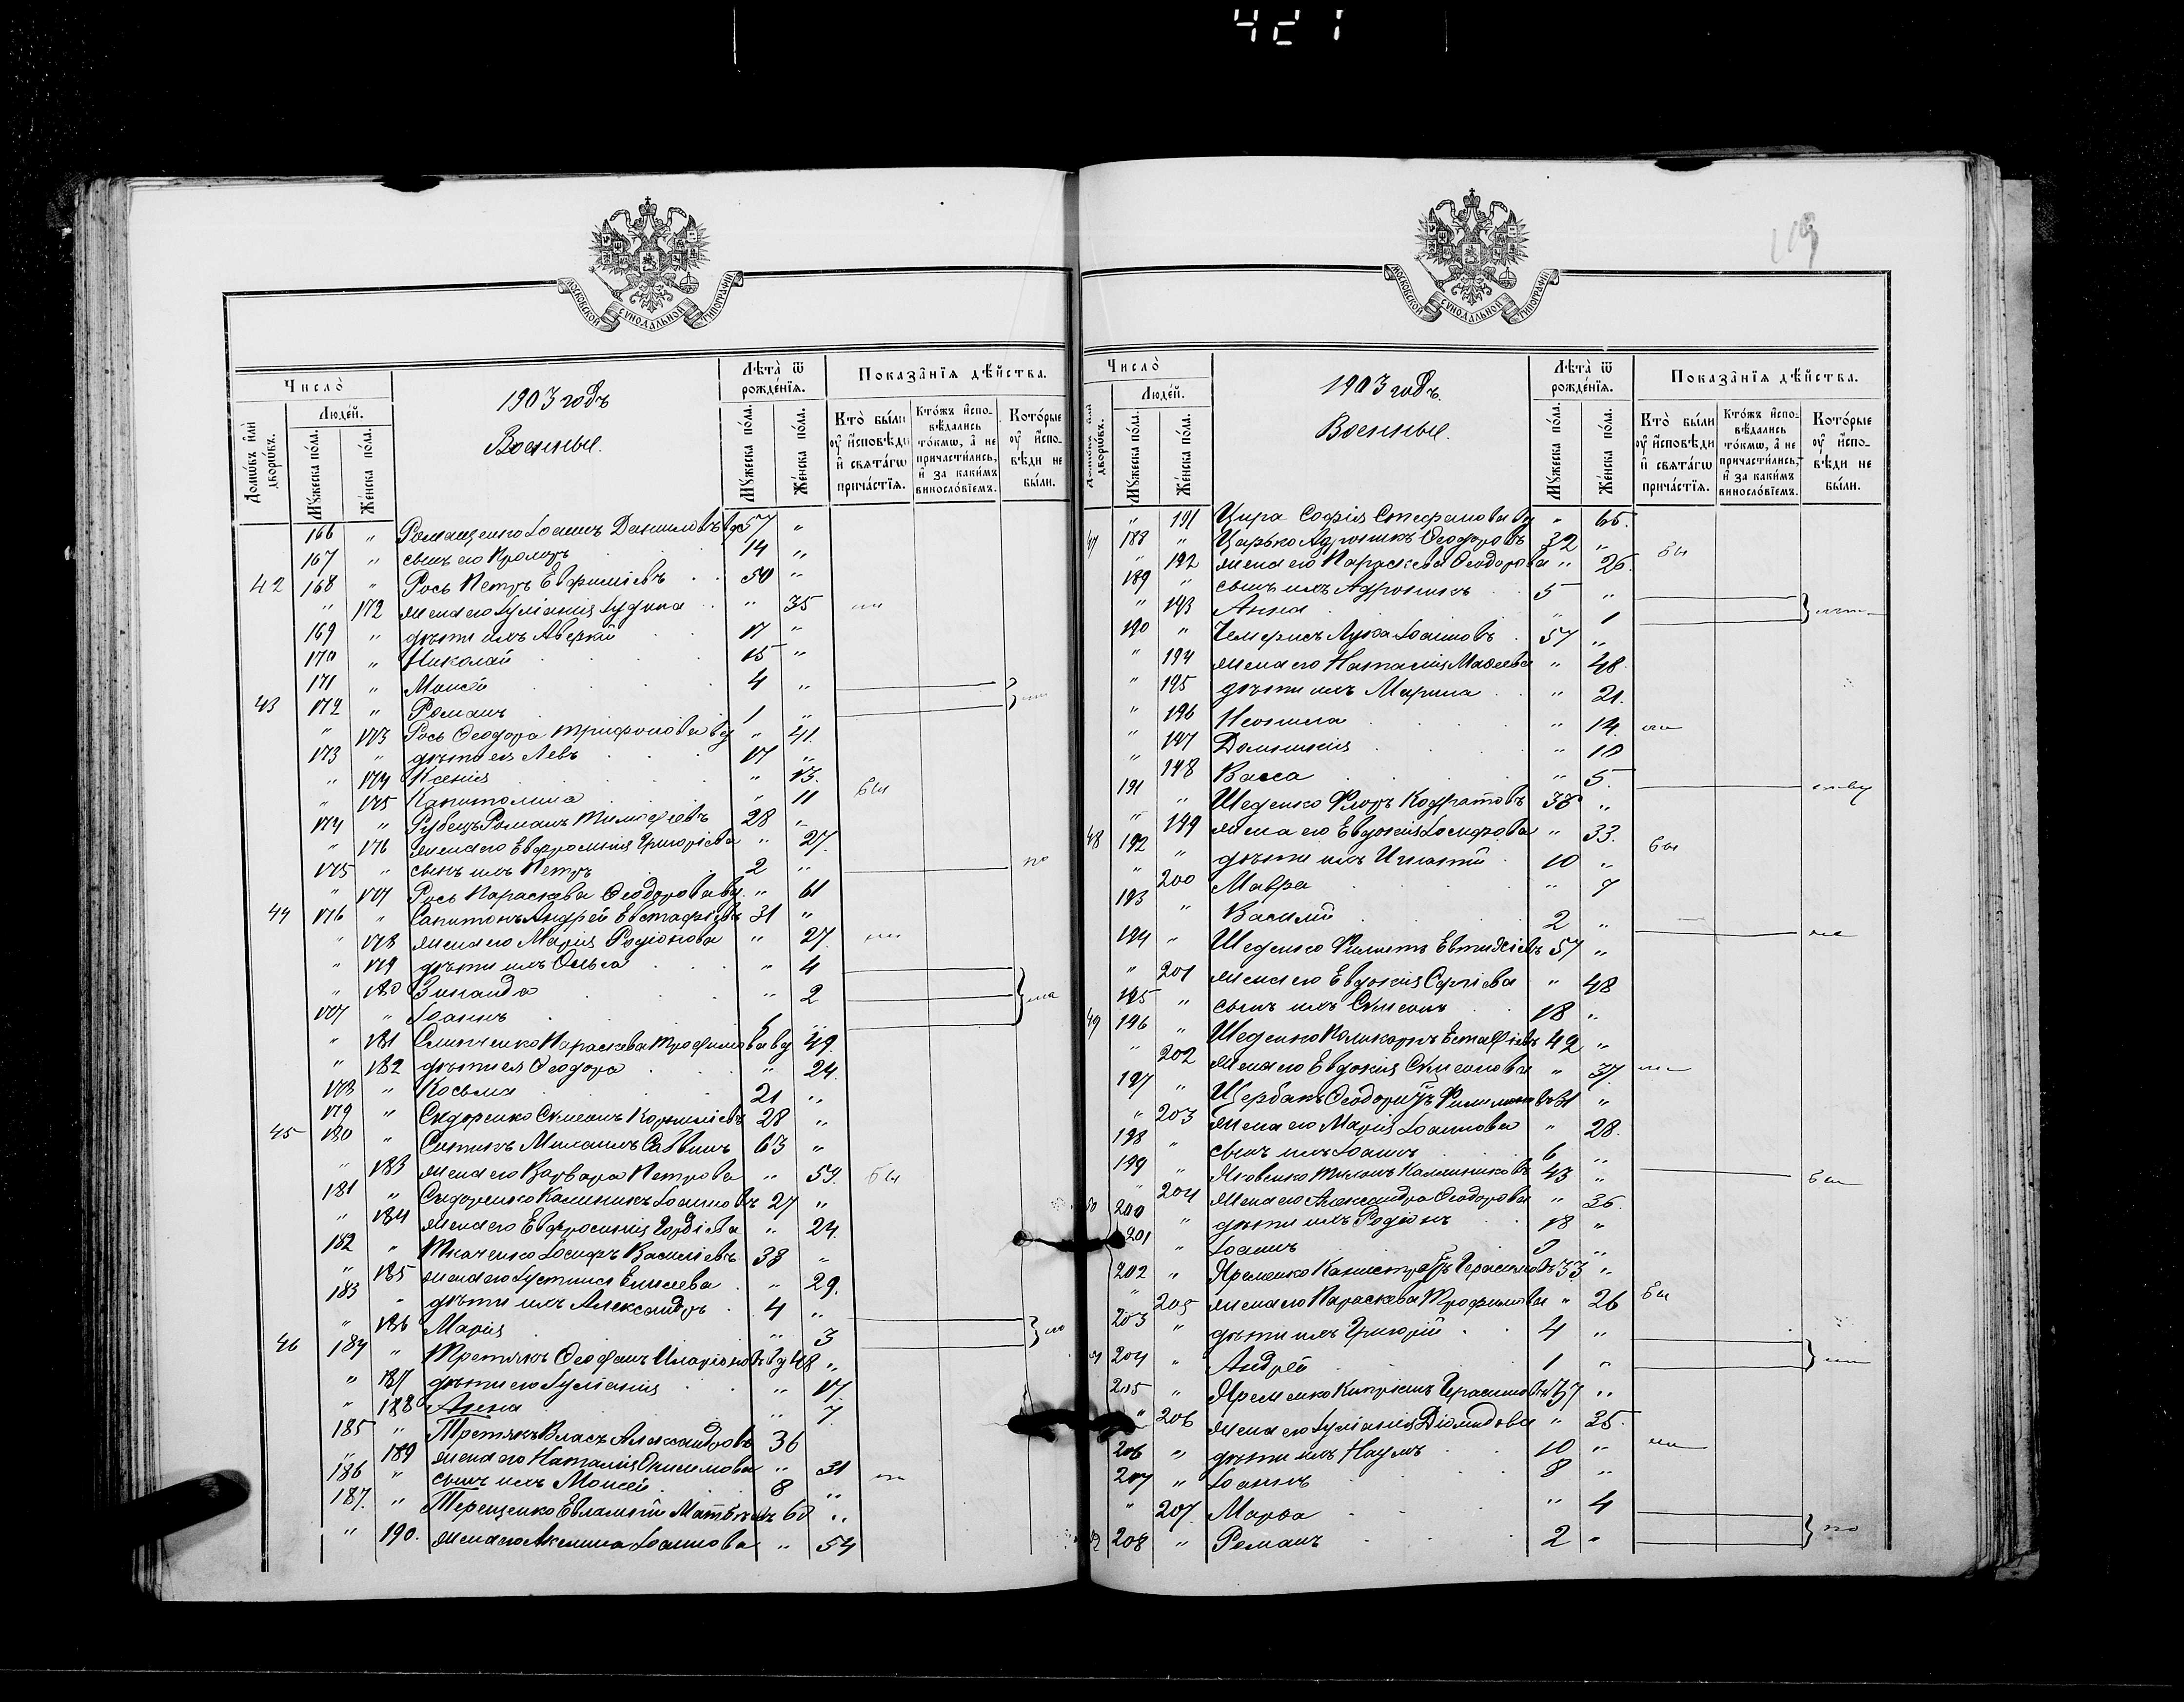 421
МОСКОВСКОЙ СѴНОДАЛЬНОЙ ТИПОГРАФІИ
Число̀
Люде́й.
Домѡ́въ и҆лѝ дворѡ́въ.
Мꙋ́жеска по́ла.
Же́нска по́ла.
1903 годъ
Военные.
Лѣта̀ ѿ рожде́нїѧ.
Мꙋ́жеска по́ла.
Же́нска по́ла.
Показа̑нїѧ дѣ́йства.
Кто̀ бы́ли оу҆ и҆сповѣ́ди и҆ свѧта́гѡ прича́стїѧ.
Кто́жъ и҆сповѣ́дались то́кмѡ, а҆ не причасти́лись, и҆ за каки́мъ винослόвїемъ.
Кото́рые оу҆ и҆сповѣ́ди не бы́ли.
166 " Ромащенко Іоаннъ Даниловъ вд 57 "
167 " сынъ его 14 "
42 168 " Рось Петръ Евфиміевъ 50 "
" 172 жена его Іуліанія " 35
169 " дѣти ихъ Аверкій 17 "
170 " Николай 15 "
171 " Моисей 4 "
43 172 " Романъ 1 "
" 173 Рось Ѳеодора Трифонова вд " 41.
173 " дѣти ея Левъ 17 "
" 174 Ксенія " 13.
" 175 Капитолина " 11
174 " Рубецъ Романъ Тимофіевъ 28 "
" 176 жена его Евфросинія Григоріева " 27.
175 " сынъ ихъ Петръ 2 "
" 177 Рось Параскева Ѳеодорова вд. " 61
44 176 " Сапитонъ Андрей Евстафіевъ 31 "
" 178 жена его Марія Родіонова " 27.
" 179 дѣти ихъ Ольга " 4
" 180 Зинаида " 2
177 " Іоаннъ
" 181 Параскева Трофимова вд 49.
" 182 дѣти ея Ѳеодора " 24.
178 " Косьма 21 "
179 " Сидоренко Симеонъ Корниліевъ 28 "
45 180 " Ситникъ Михаилъ Саввинъ 63 "
" 183 жена его Варвара Петрова " 59.
181 " Сидоренко Калиникъ Іоанновъ 27 "
" 184 жена его Евфросинія Гордіева " 24.
182 " Ткаченко Іосифъ Василіевъ 33 "
" 185 жена его Іустинія Елисеева " 29.
183 " дѣти ихъ Александръ 4 "
" 186 Марія " 3
46 184 " Третякъ Ѳеофанъ Иларіоновъ вд 48 "
" 187 дѣти его Іуліанія " 17.
" 188 Агена " 7.
185 " Третякъ Власъ Александровъ 36
" 189 жена его Наталія Онисимова " 31
186 " сынъ ихъ Моисей 8 "
187. " Терещенко Евлампій Матѳеевъ 60 "
" 190. жена его Акилина Іоаннова " 54
МОСКОВСКОЙ СѴНОДАЛЬНОЙ ТИПОГРАФІИ
Число̀
Люде́й.
Домѡ́въ и҆лѝ дворѡ́въ.
Мꙋ́жеска по́ла.
Же́нска по́ла.
1903 годъ.
Военные.
Лѣта̀ ѿ рожде́нїѧ.
Мꙋ́жеска по́ла.
Же́нска по́ла.
Показа̑нїѧ дѣ́йства.
Кто̀ бы́ли оу҆ и҆сповѣ́ди и҆ свѧта́гѡ прича́стїѧ.
Кто́жъ и҆сповѣ́дались то́кмѡ, а҆ не причасти́лись, и҆ за каки́мъ винослόвїемъ.
Кото́рые оу҆ и҆сповѣ́ди не бы́ли.
" 191 Цира Софія Стефанова вд " 65.
47 188 " Царько Адроникъ Ѳеодоровъ 32 "
" 192 жена его Параскева Ѳеодорова " 26. бы
189 " сынъ ихъ Адроникъ 5 "
" 193 Анна " 1
190 " Чемерисъ Лука Іоанновъ 57 "
" 194 жена его Наталія Маѳеева " 48.
" 195 дѣти ихъ Марина " 21.
" 196 Неонила " 14.
" 197 Домникія " 10
" 198 Васса " 5.
191 " Шеденко Флоръ Кодратовъ 38 "
" 199 жена его Евдокія Іосифова " 33.
48 192 " дѣти ихъ Игнатій 10 "
" 200 Мавра " 7
193 " Василій 2 "
194 " Шеденко Филиппъ Евтихіевъ 57 "
" 201 жена его Евдокія Сергіева " 48
195 " сынъ ихъ Симеонъ 18 "
49 196 " Шеденко Поликарпъ Естафіевъ 42 "
" 202 жена его Евдокія Симеонова " 37.
197 " Щербакъ Ѳеодоритъ Филимоновъ 31 "
" 203 жена его Марія Іоаннова " 28.
198 " сынъ ихъ Іоаннъ 6 "
199 " Яковенко Тихонъ Калинниковъ 43 "
" 204 жена его Александра Ѳеодорова " 36.
50 200 " дѣти ихъ Родіонъ 18 "
201 " Іоаннъ "
202 " Яременко Калистратъ Герасимовъ 33 "
" 205 жена его Параскева Трофимова " 26 бы
203 " дѣти ихъ Григорій 4 "
51 204 " Андрей 1 "
205 " Яременко Кипріанъ Герасимовъ 37 "
" 206 жена его Іуліанія Діомидова " 35.
206 " дѣти ихъ Наумъ 10 "
207 " Іоаннъ 8 "
" 207. Марѳа " 4
52 208 " Романъ 2 "